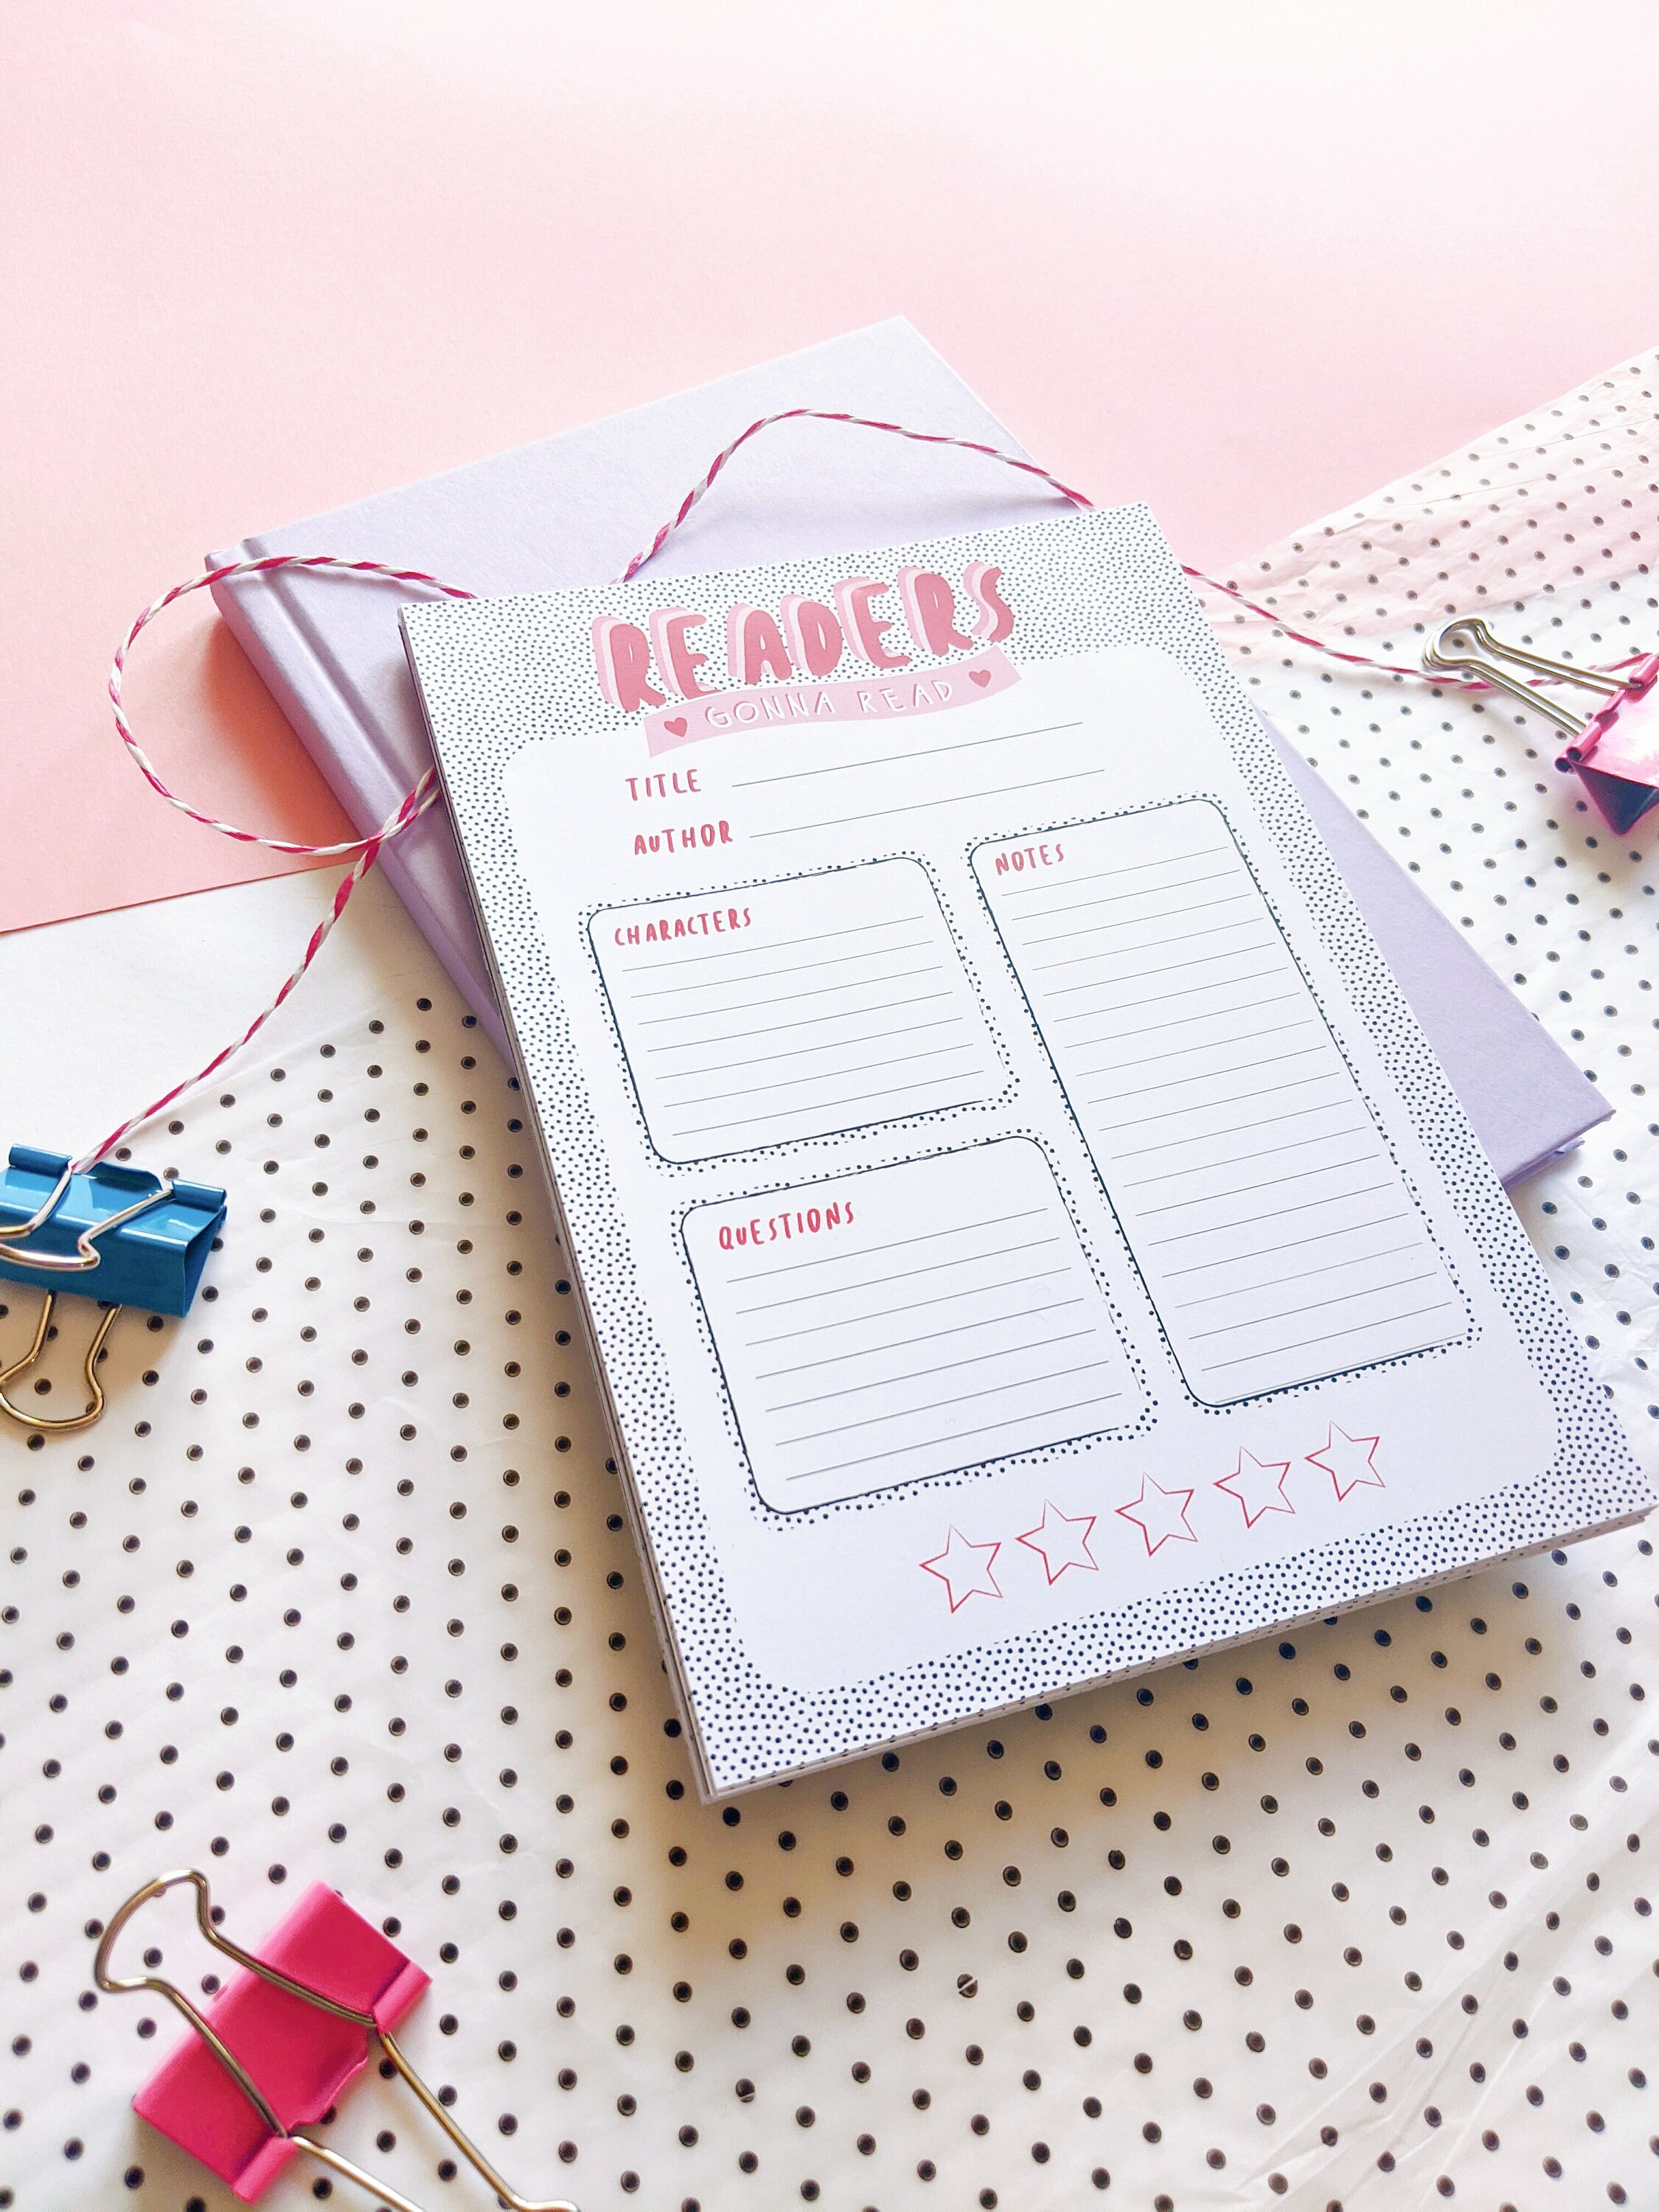 READERS
GONNA READ
TITLE
AUTHOR
CHARACTERS
NOTES
QUESTIONS